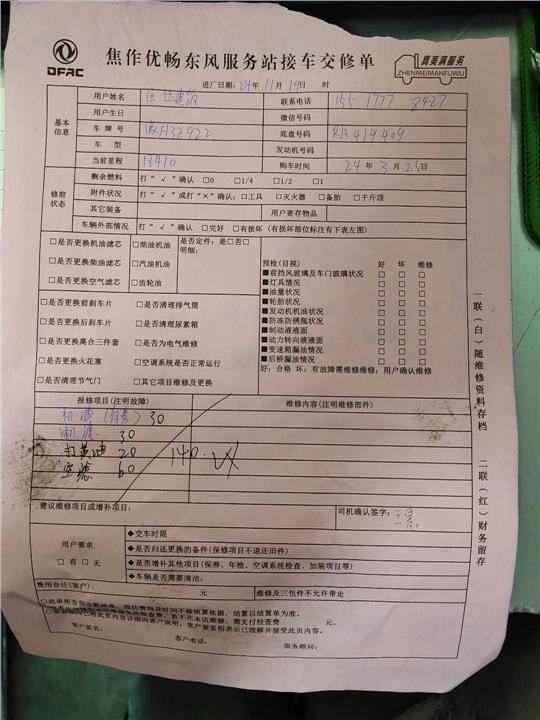 DFAC
焦作优畅东风服务站接车交修单
真美满服务
ZHENMEIMANFUWU
进厂日期：24年 11月 19日 时
基本信息
用户姓名
联系电话 155 1777 8427
用户生日
微信号码
车牌号 H32922
底盘号码 RA419409
车型
发动机号码
当前里程 16410
购车时间 24年 3月 25日
修前状态
剩余燃料 打“√”确认 □0 □1/4 □1/2 □1
附件状况 打“√”或打“×”确认：□工具 □灭火器 □备胎 □千斤顶
其它装备
用户寄存物品
车辆外部情况 打“√”确认 □完好 □有损坏（有损坏部位标注有下表左图）
□是否更换机油滤芯 □柴油机油
□是否更换柴油滤芯 □汽油机油
□是否更换空气滤芯 □齿轮油
是否定件：是□否□
明细：
□是否更换前刹车片 □是否清理排气筒
□是否更换后刹车片 □是否清理尿素箱
□是否更换离合三件套 □是否为电气维修
□是否更换火花塞 □空调系统是否正常运行
□是否清理节气门 □其它项目维修及更换
预检(目视) 好 坏 维修
■前挡风玻璃及车门玻璃状况 □ □ □
■灯具情况 □ □ □
■油量状况 □ □ □
■轮胎状况 □ □ □
■发动机机油状况 □ □ □
■防冻防锈瓶状况 □ □ □
■制动液液面 □ □ □
■动力转向液液面 □ □ □
■变速箱漏油情况 □ □ □
■后桥漏油情况 □ □ □
好：合格 坏：有故障需维修维修：用户确认维修
报修项目(注明故障)
维修内容(注明维修部件)
机油 30
机滤 30
打黄油 20
空滤 60
140.
建议维修项目或增补项目：
司机确认签字：
用户要求
□有 □无
◆交车时限
◆是否归还更换的备件(保修项目不退还旧件)
◆是否增补其他项目(保养、年检、空调系统检查、加装项目等)
◆车辆是否需要清洁：
费用合计(客户)： 元
维修及三包件不允许带走
◇此单所含预诊断结果、预估费用及时间不做结算依据，结算以结算单为准。
元。
客户签名：
客户电话：
服务顾问：
一联（白）随维修资料存档
二联（红）财务留存